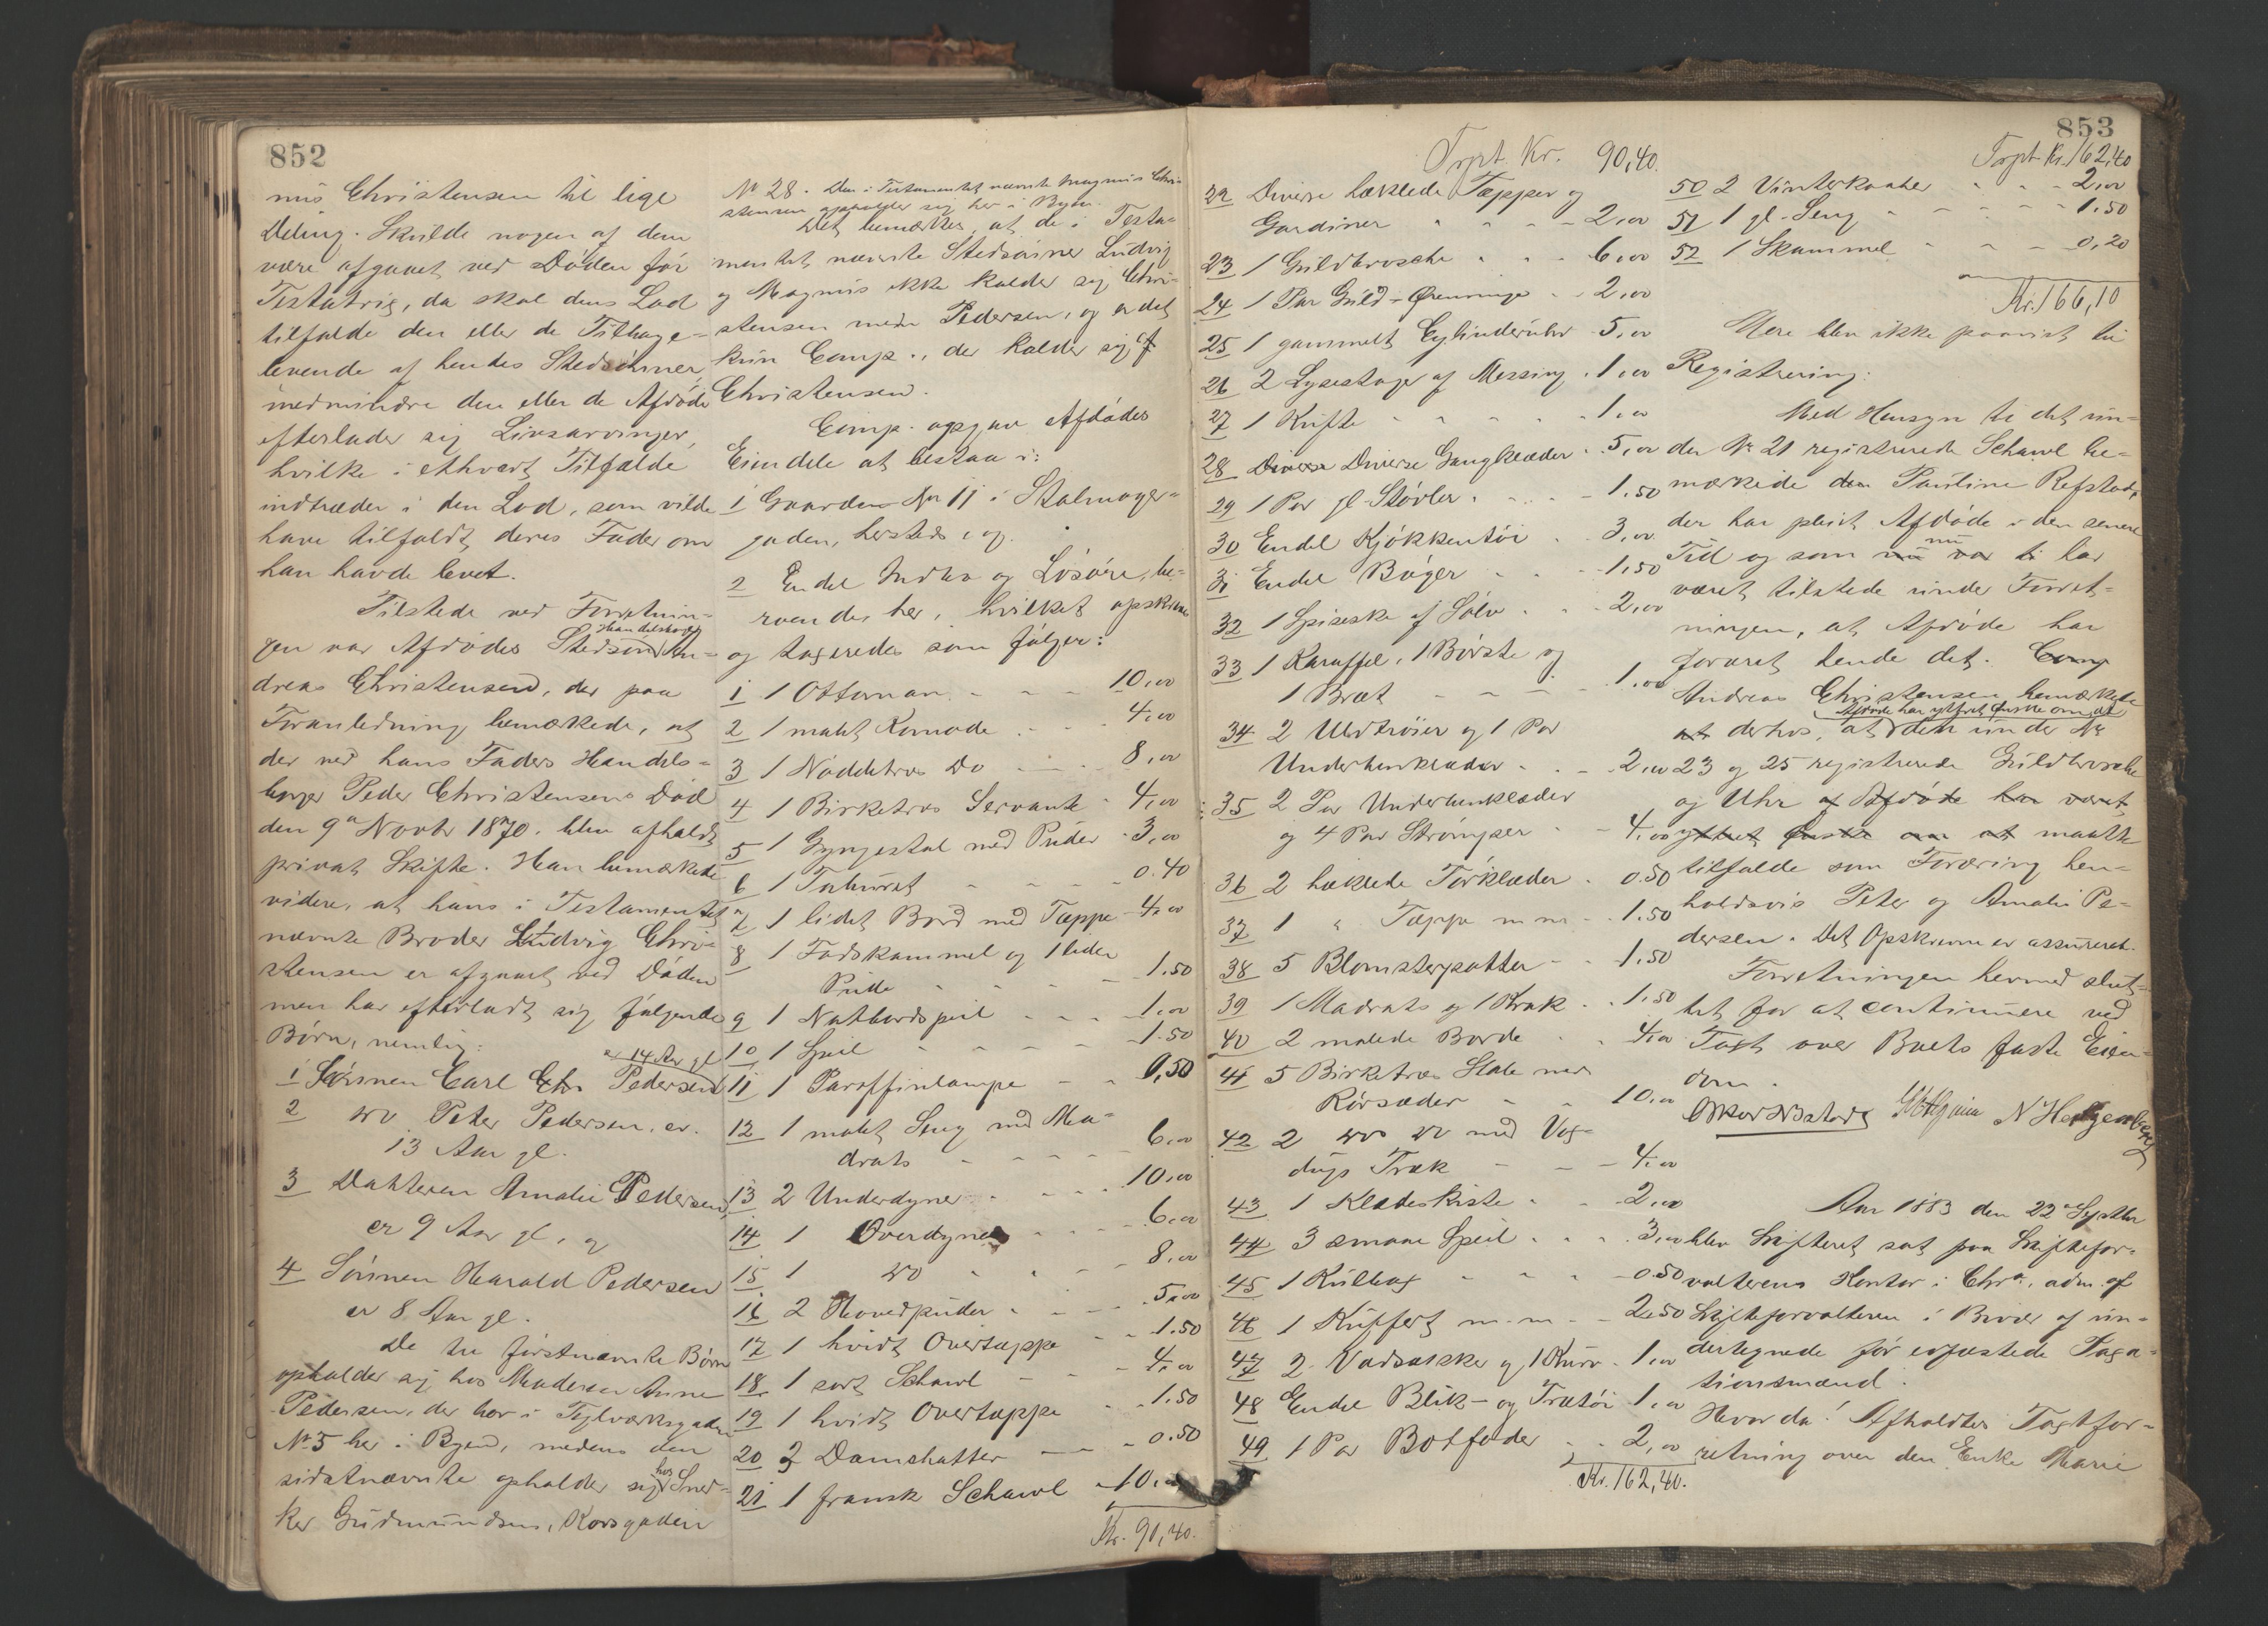 852
nus Christensen til lige
Deling. Skulde nogen af dem
være afgaaet ved Døden før
Testatrix, da skal dens Lod
tilfalde den eller de Tilbage-
levende af hendes Stedsønner,
medmindre den eller de Afdøde
efterlader sig Livsarvinger,
hvilke i ethvert Tilfælde
indtræder i den Lod, som vilde
have tilfaldt deres Fader om
han havde levet.
Tilstede ved Forretnin-
gen var Afdødes Stedsøn Handelsborger An-
dreas Christensen, der paa
Foranledning bemærkede, at
der ved hans Faders Handels-
borger Peder Christensens Død
den 9de Novbr 1870. blev afholdt
privat Skifte. Han bemærkede
videre, at hans i Testamentet
nævnte Broder Ludvig Chri-
stensen er afgaaet ved Døden
men har efterladt sig følgende
Børn, nemlig:
1 Sønnen Carl Chr Pedersen er 14 Aar gl
2 do Peter Pedersen, er
13 Aar gl.
3 Datteren Amalie Pedersen,
er 9 Aar gl, og
4 Sønnen Harald Pedersen
er 8 Aar gl.
De tre førstnævnte Børn
opholder sig hos Moderen Anne
Pedersen, der bor i Teglværksgaden
No 5 her i Byen, medens den
sidstnævnte opholder sig hos Sned-
ker Gudmundsen, Korsgaden
No 28. Den i Testamentet nævnte Magnus Chri-
stensen opholder sig her i Byen.
Det bemærkes, at de i Testa-
mentet nævnte Stedsønner Ludvig
og Magnus ikke kalder sig Chri-
stensen men Pedersen, og er det
kun Comp., der kalder sig
Christensen.
Comp. opgav Afdødes
Eiendele at bestaa i:
1 Gaarden No 11 i Stalmager-
gaden, hersteds, og
2 Endel Indbo og Løsøre, be-
roende her, hvilket opskreves
og taxeredes som følger:
1 1 Ottoman 10,00
2 1 malet Komode 4,00
3 1 Nøddetræs Do 8,00
4 1 Birketræs Servante 4,00
5 1 Gyngestol med Puder 3,00
6 1 Taburet 0.40
7 1 lidet Bord med Tæppe 4,00
8 1 Fodskammel og 1 liden
Pude 1.50
9 1 Natbordspeil 1,00
10 1 Speil 1.50
11 1 Paraffinlampe 0,50
12 1 malet Seng med Ma-
drats 6,00
13 2 Underdyner 10,00
14 1 Overdyne 6,00
15 1 do 8,00
16 2 Hovedpuder 5,00
17 1 hvidt Overtæppe 1.50
18 1 sort Schawl 4,00
19 1 hvidt Overtæppe 1.50
20 2 Damehatter 0.50
21 1 fransk Schawl 10,00
Kr. 90,40.
853
Trpt. Kr. 90,40.
22 Diverse hæklede Tæpper og
Gardiner 2,00
23 1 Guldbrosche 6,00
24 1 Par Guld-Ørenringe 2,00
25 1 gammelt Cylinderuhr 5,00
26 2 Lysestager af Messing 1,00
27 1 Kufte 1,00
28 Diverse Diverse Gangklæder 5,00
29 1 Par gl. Støvler 1,50
30 Endel Kjøkkentøi 3,00
31 Endel Bøger 1,50
32 1 Spiseske af Sølv 2,00
33 1 Karaffel, 1 Børste og
1 Bræt 1,00
34 2 Uldtrøier og 1 Par
Underbenklæder 2,00
35 2 Par Underbenklæder
og 4 Par Strømper 4,00
36 2 hæklede Tørklæder 0.50
37 1 " Tæppe m m 1.50
38 5 Blomsterpotter 1.50
39 1 Madrats og 1 Krak 1.50
40 2 malede Borde 4,00
41 5 Birketræs Stole med
Rørsæder 10,00
42 2 do do med Vox-
dugs Træk 4,00
43 1 Klædeskiste 2,00
44 3 smaae Speil 3,00
45 1 Kulbox 0.50
46 1 Kuffert m. m 2.50
47 2 Vadsækker og 1 Kurv 1,00
48 Endel Blik- og Trætøi 1,00
49 1 Par Botforer 2,00
Kr. 162,40.
Trpt. Kr. 162,40
50 2 Vinterkaaber 2,00
51 1 gl. Seng 1.50
52 1 Skammel 0,20
Kr. 166,10
Mere blev ikke paavist til
Registrering.
Med Hensyn til det un-
der No 21 registrerede Schawl be-
mærkede den Pauline Refstad,
der har pleiet Afdøde i den senere
Tid og som nu var ti har
nu
været tilstede under Forret-
ningen, at Afdøde har
foræret hende det. Comp
Andreas Christensen bemærkede
Afdøde har yttret Ønske om, at
at derhos, at den under No
23 og 25 registrerede Guldbrosche
og Uhr af Afdøde har været
yttret Ønske om at maatte
tilfalde som Foræring hen-
holdsvis Peter og Amalie Pe-
dersen. Det Opskrevne er assureret.
Forretningen hermed slut-
tet for at continuere ved
Taxt over Boets faste Eien-
dom.
Aar 1883 den 22de Septbr
blev Skifteret sat paa Skiftefor-
valterens Kontor i Chra., adm. af
Skifteforvalteren i Overvær af un-
dertegnede før edfæstede Taxa-
tionsmænd.
Hvorda: Afholdtes Taxtfor-
retning over den Enke Marie